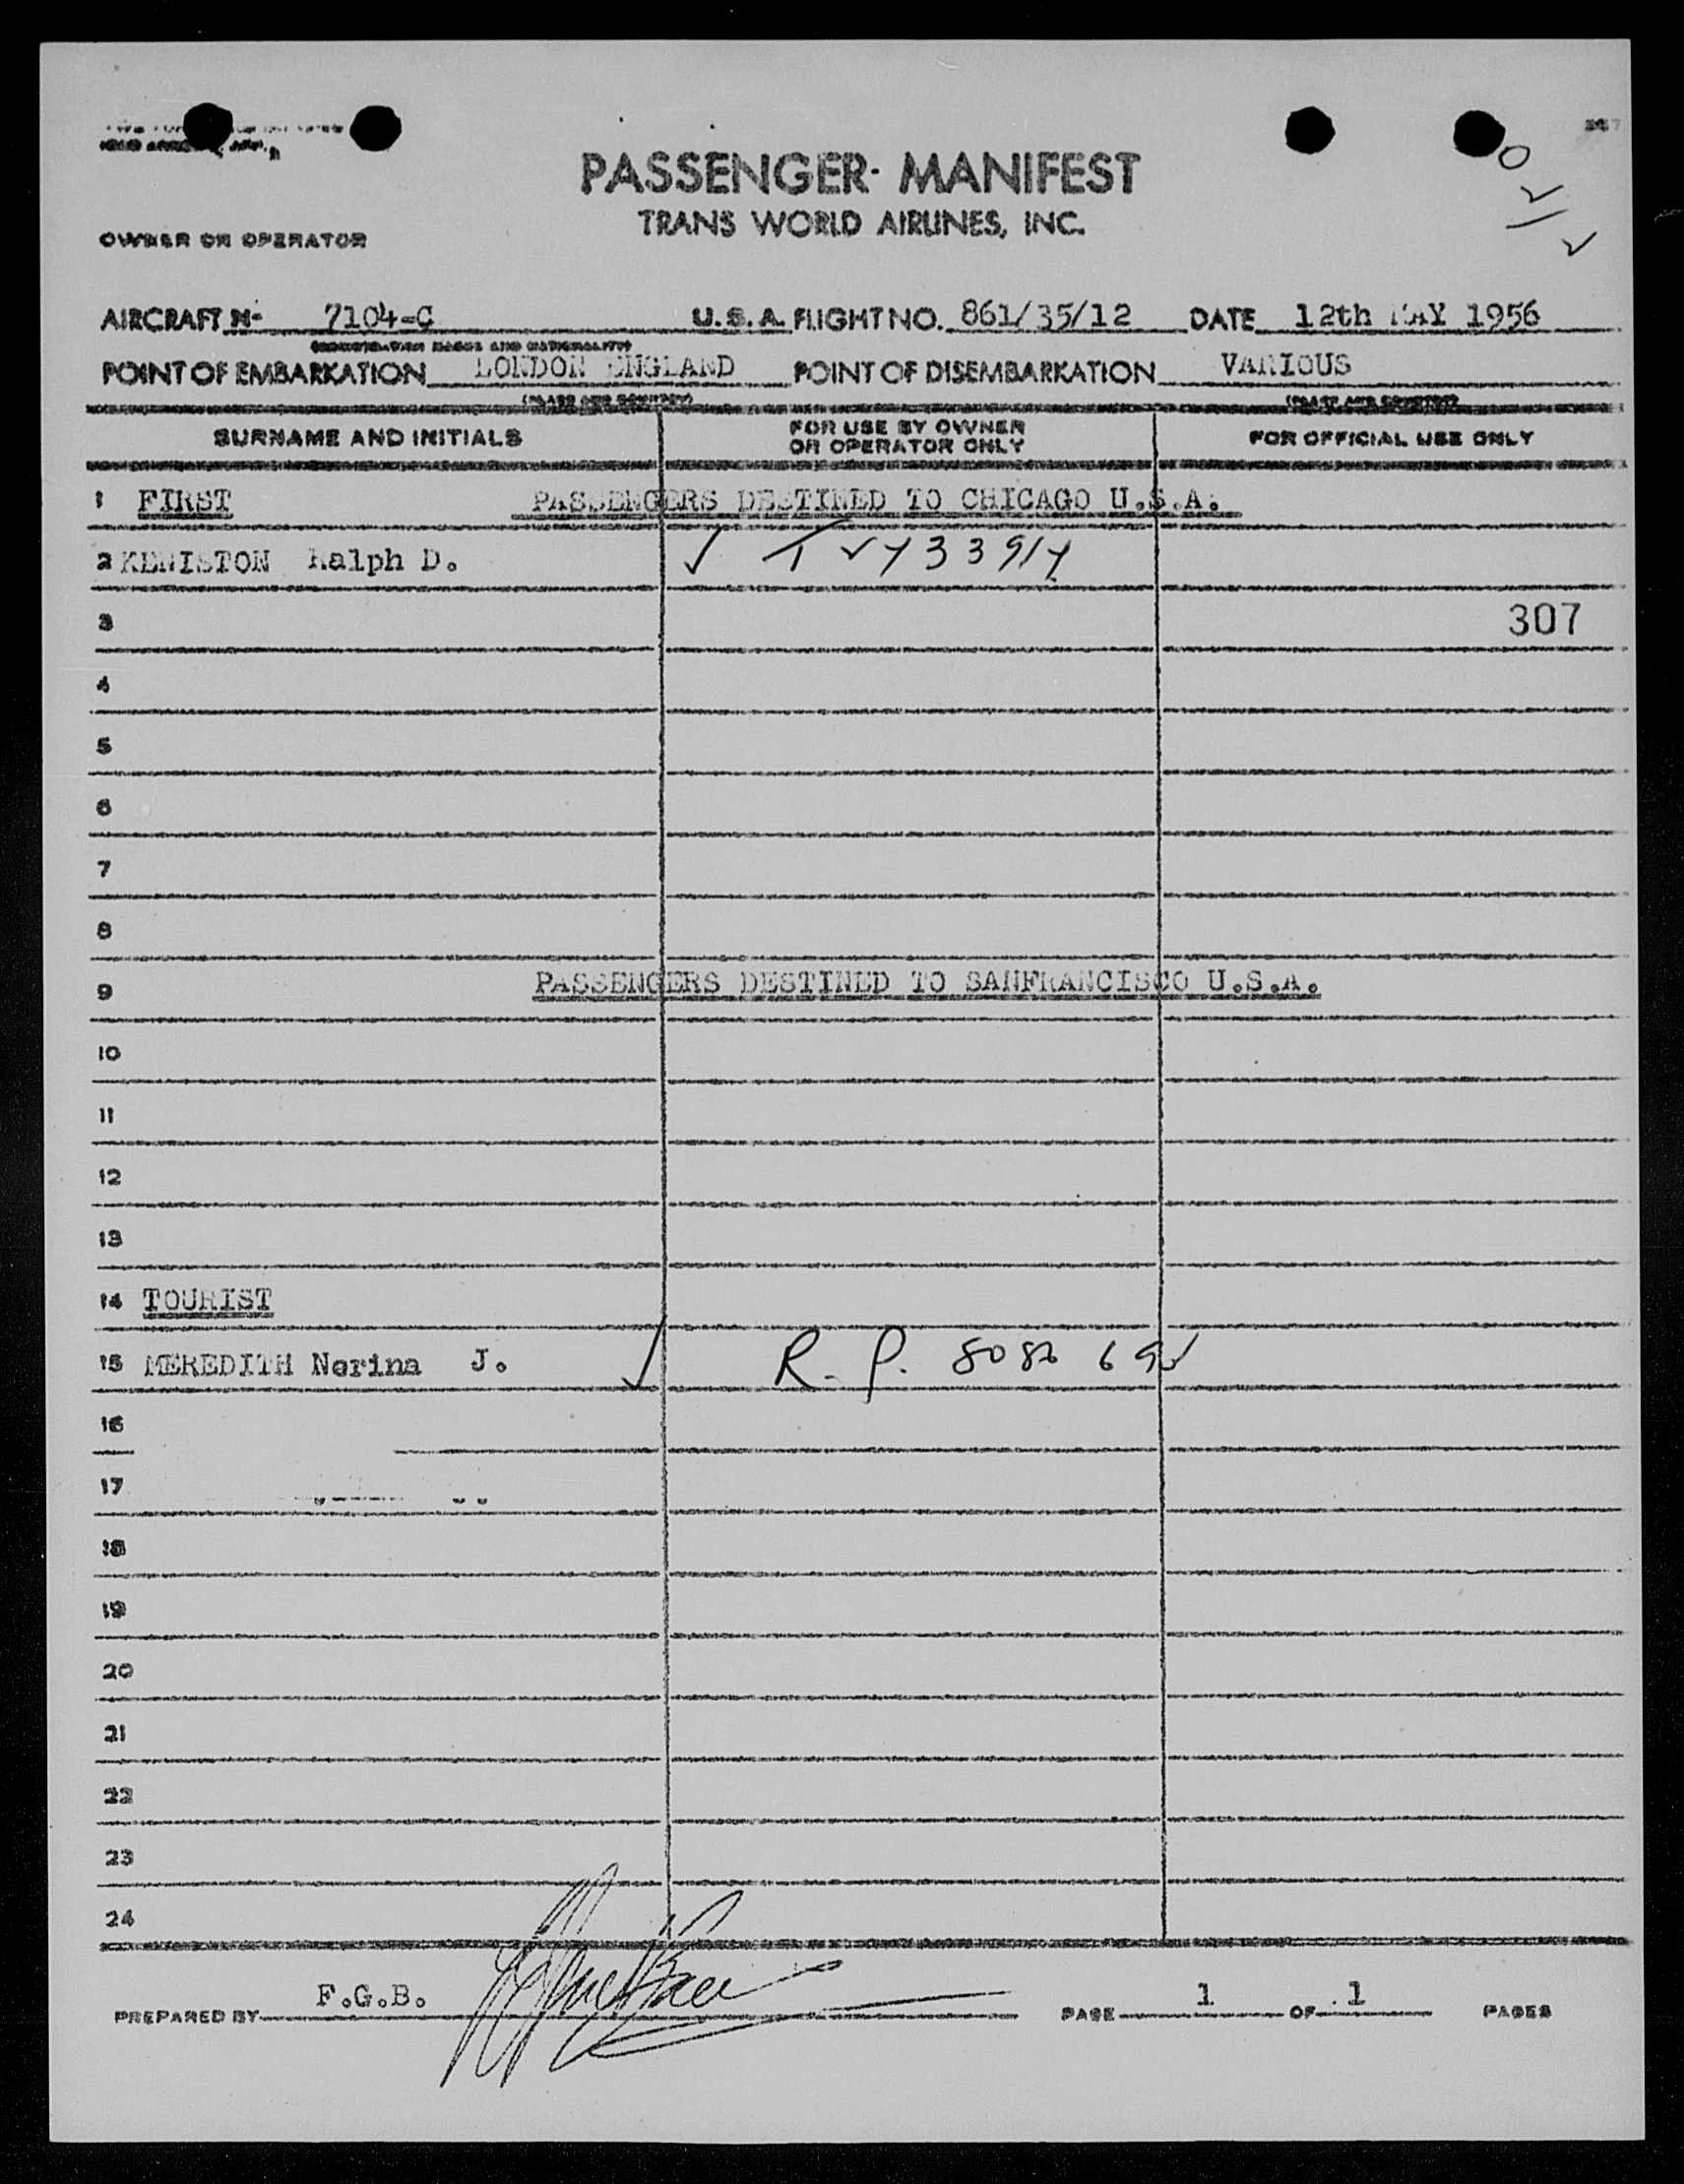 PASSENGER- MANIFEST
TRANS WORLD AIRLINES, INC.
OWNER OR OPERATOR
AIRCRAFT N- 7104-C U.S.A. FLIGHT NO. 861/35/12 DATE 12th MAY 1956
POINT OF EMBARKATION LONDON ENGLAND POINT OF DISEMBARKATION VARIOUS
SURNAME AND INITIALS FOR USE BY OWNER OR OPERATOR ONLY FOR OFFICIAL USE ONLY
1 FIRST PASSENGERS DESTINED TO CHICAGO U.S.A.
2 KENISTON Ralph D.
3 307
4
5
6
7
8
9 PASSENGERS DESTINED TO SANFRANCISCO U.S.A.
10
11
12
13
14 TOURIST
15 MEREDITH Nerina J. R. P.
16
17
18
19
20
21
22
23
24
PREPARED BY F.G.B. PAGE 1 OF 1 PAGES